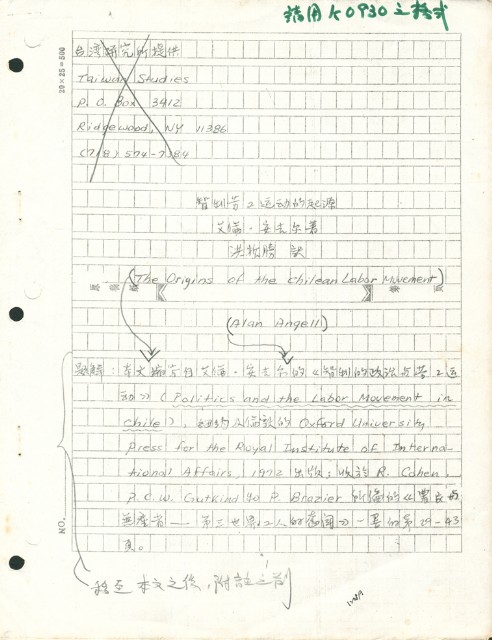 請用K0930之格式
20×25=500
台湾研究所提供
Taiwan Studies
P.O. Box 3412
Ridgewood, NY 11386
(718) 574-7384
智利劳工运动的起源
艾倫·安吉尔著
洪哲勝 訳
(The Origins of the Chilean Labor Movement)
(Alan Angell)
題解:本文摘自艾倫·安吉尔的《智利的政治与劳工运
动》(Politics and the Labor Movement in
Chile), 紐約及倫敦的 Oxford University
Press for the Royal Institute of Interna-
tional Affairs, 1972 出版;收於 R. Cohen,
P.C.W. Gutkind 与 P. Brazier 所編的《農民与
無產者——第三世界工人的奮鬥》一書的第29-43
頁。
NO.
移至本文之後,附註之前